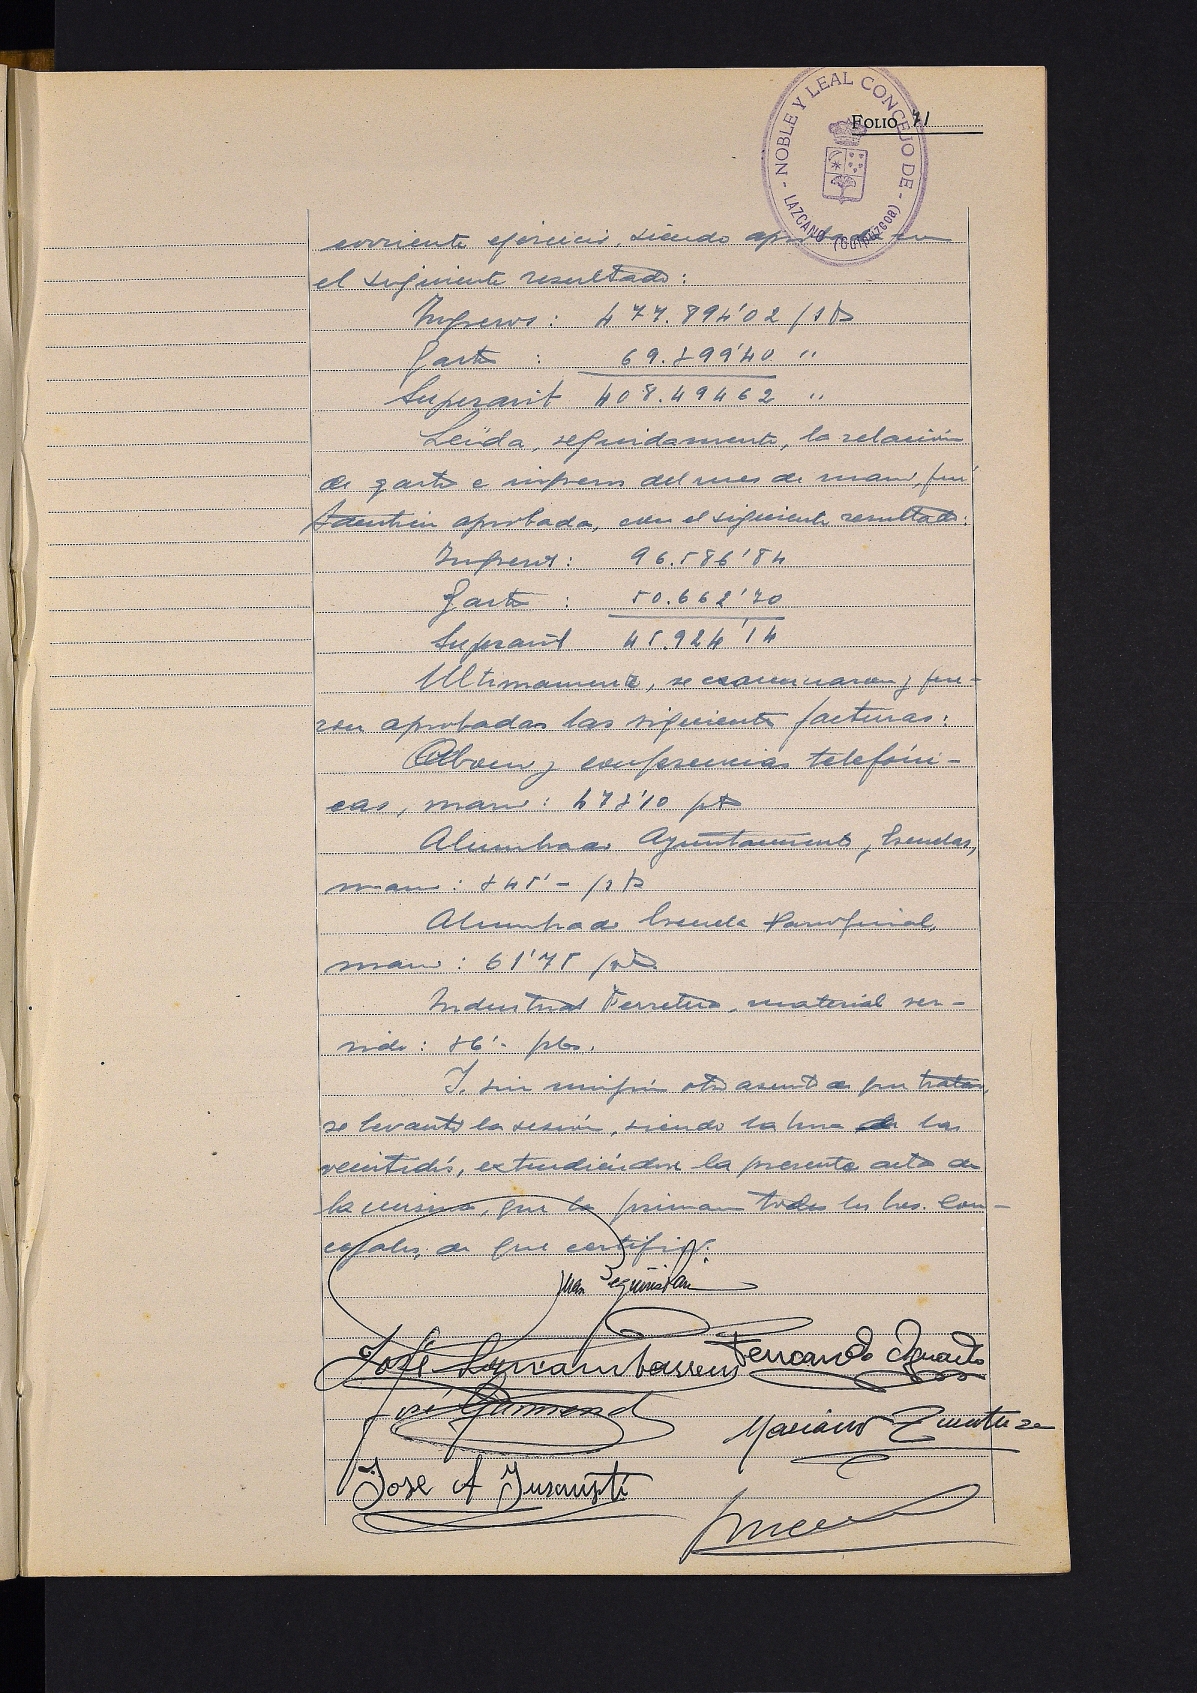 FOLIO 71
- NOBLE Y LEAL CONCEJO DE -
LAZCANO (Guipúzcoa)
corriente ejercicio, siendo aprobado en
el siguiente resultado:
Ingresos: 477.894'02 pts
Gastos:
Superavit 408.494 62 "
Leída, seguidamente, la relación
de gastos e ingresos del mes de marzo, fué
también aprobada, con el siguiente resultado:
Ingresos: 96.586'84
Gastos: 50.662'70
Superavit 45.924'14
Ultimamente, se examinaron y fue-
ron aprobadas las siguientes facturas:
Abono y conferencias telefóni-
cas, marzo: pts
Alumbrado Ayuntamiento y Escuelas,
marzo: pts
Alumbrado Escuela Parroquial,
marzo: 61'75 pts
Industrial Ferretera, material ser-
vido: pts.
Y, sin ningún otro asunto de que tratar,
se levantó la sesión, siendo la hora de las
veintidós, extendiéndose la presente acta de
la misma, que la firman todos los Sres. Con-
cejales, de que certifico.
Juan
José Fernando
José Garmendia
Mariano
José A